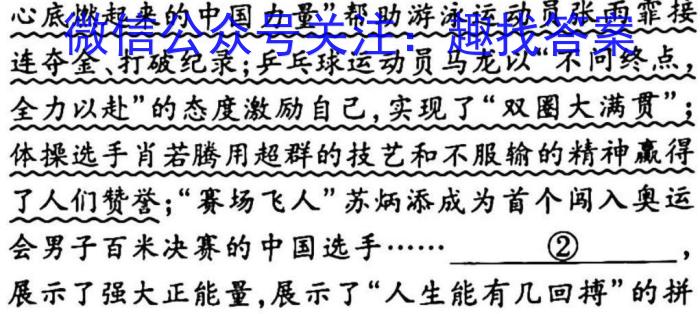 心底燃起来的中国力量”帮助游泳运动员张雨霏接
微信公众号关注：趣找答案
连夺金、打破纪录;乒乓球运动员马龙以“不问终点，
全力以赴”的态度激励自己,实现了“双圈大满贯”；
体操选手肖若腾用超群的技艺和不服输的精神赢得
了人们赞誉;“赛场飞人”苏炳添成为首个闯入奥运
会男子百米决赛的中国选手…… ② ，
展示了强大正能量,展示了“人生能有几回搏”的拼